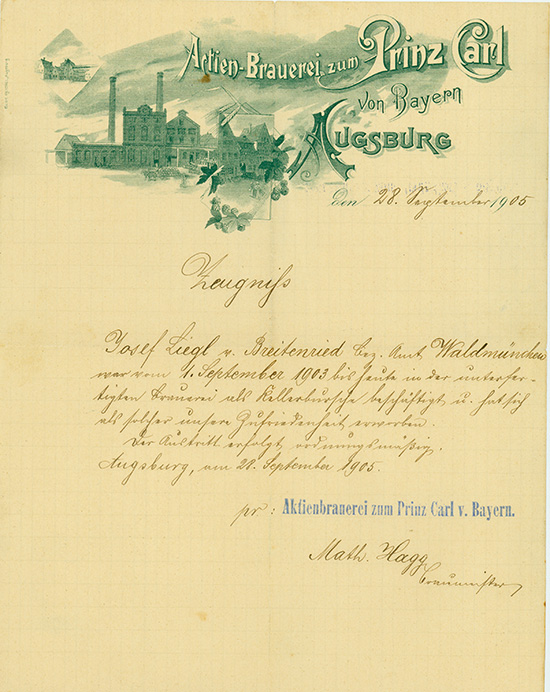 Actien-Brauerei zum Prinz Carl
von Bayern
AUGSBURG
den 28. September 1905
Zeugniss
Josef Liegl v. Breitenried Bez. Amt Waldmünchen
war vom 1. September 1903 bis heute in der unterfer-
tigten Brauerei als Kellerbursche beschäftigt u. hat sich
als solcher unsere Zufriedenheit erworben.
Der Austritt erfolgt ordnungsmäßig.
Augsburg, am 28. September 1905.
pr: Aktienbrauerei zum Prinz Carl v. Bayern.
Math. Hagg
Braumeister